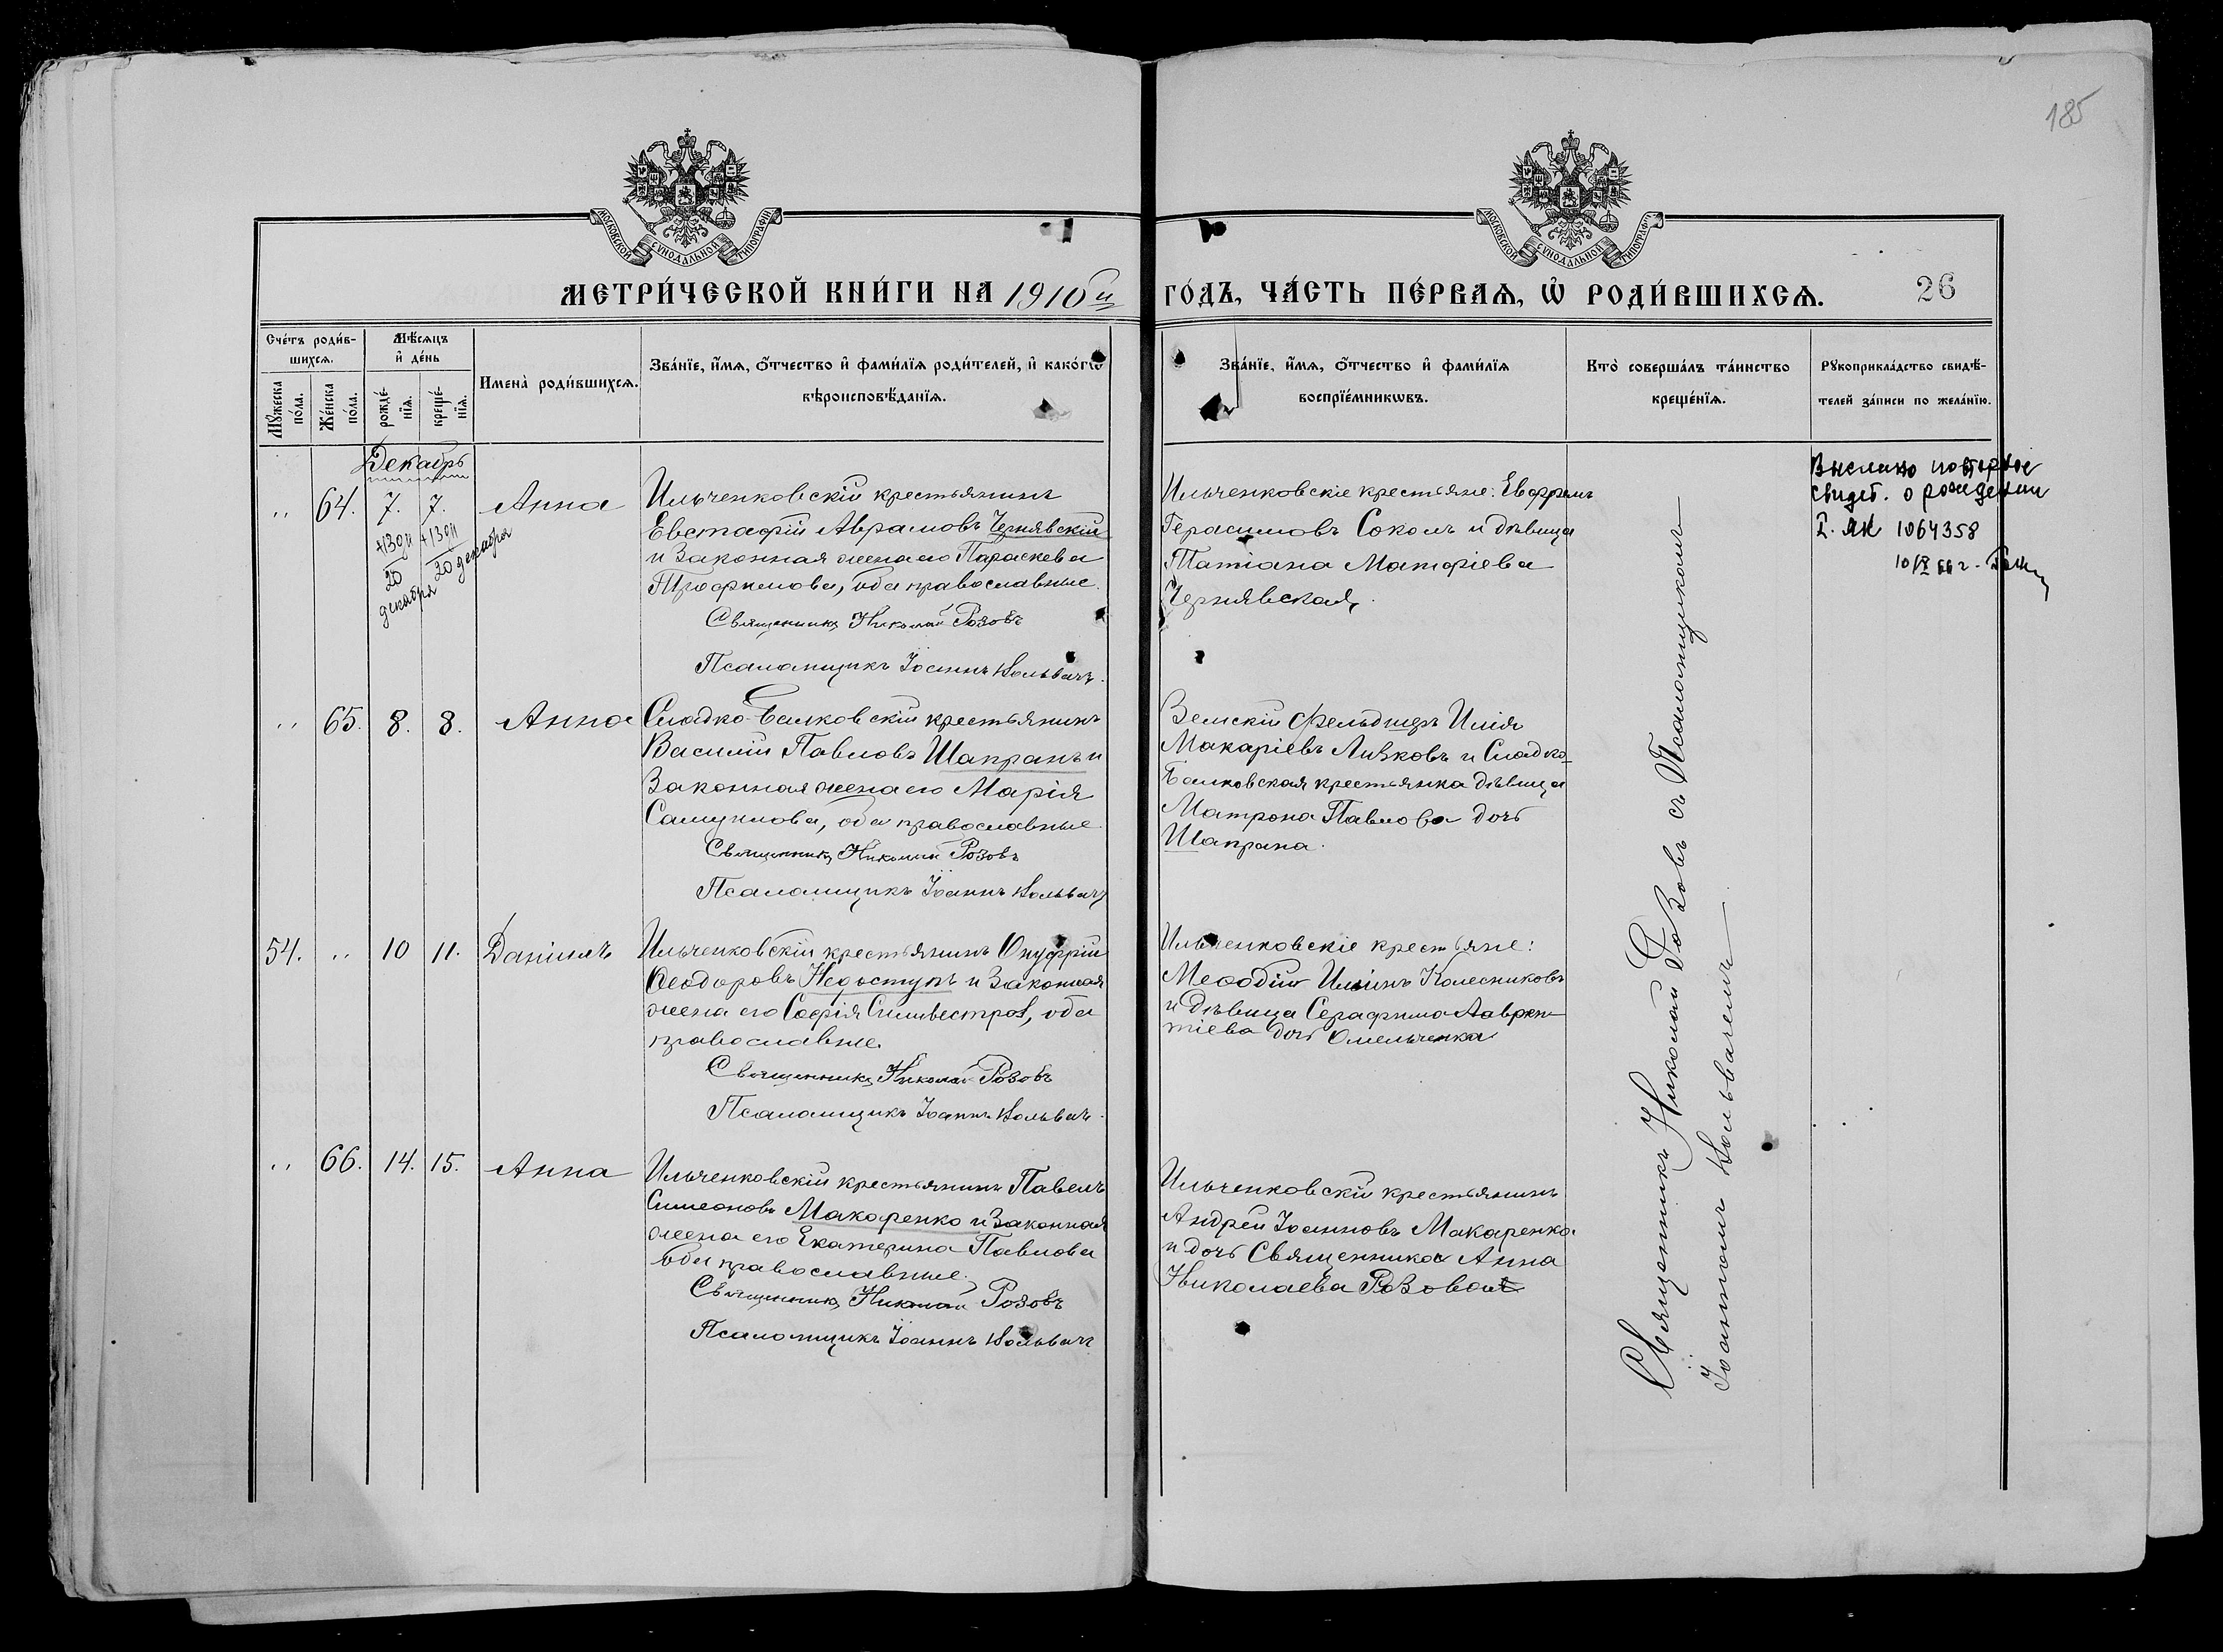 185
МОСКОВСКОЙ СѴНОДАЛЬНОЙ ТИПОГРАФІИ
МОСКОВСКОЙ СѴНОДАЛЬНОЙ ТИПОГРАФІИ
МЕТРИ́ЧЕСКОЙ КНИ́ГИ НА 1910й ГО́ДЪ, ЧА́СТЬ ПЕ́РВАѦ, Ѡ РОДИ́ВШИХСѦ. 26
Сче́тъ роди́в-
шихсѧ.
Мꙋжеска по́ла.
Же́нска по́ла.
Мѣ́сѧцъ
и҆ де́нь
рожде́-
нїѧ.
креще́-
нїѧ.
Имена̀ роди́вшихсѧ.
Зва́нїе, и҆́мѧ, ѻ҆́тчество и҆ фами́лїѧ роди́телей, и҆ како́гѡ
вѣроисповѣ́данїѧ.
Зва́нїе, и҆́мѧ, ѻ҆́тчество и҆ фами́лїѧ
воспрїе́мникѡвъ.
Кто̀ соверша́лъ та́инство
креще́нїѧ.
Рꙋкоприкла́дство свидѣ́-
телей за́писи по жела́нїю.
Декабрь
„ 64. 7. 7. Анна
+13дн +13дн
20 декабря 20 декабря
Ильченковскій крестьянинъ
Евстафій Аврамовъ Чернявскій
и законная жена его Параскева
Трофимова, оба православные.
Священникъ Николай Розовъ
Псаломщикъ Іоаннъ
Ильченковскіе крестьяне: Ефремъ
Герасимовъ Соколъ и дѣвица
Татіана Матфіева
Чернявская.
Выслано повторное
свидет. о рождении
I. ЯК 1064358
10/IX 66 г.
„ 65. 8. 8. Анна
Сладко-Балковскій крестьянинъ
Василій Павловъ Шапранъ и
законная жена его Марія
Самуилова, оба православные.
Священникъ Николай Розовъ
Псаломщикъ Іоаннъ
Земскій фельдшеръ Илія
Макаріевъ Лизковъ и Сладко-
Балковская крестьянка дѣвица
Матрона Павлова дочь
Шапрана.
54. „ 10 11. Даніилъ
Ильченковскій крестьянинъ Онуфрій
Ѳеодоровъ Недоступъ и законная
жена его Софія Сильвестров, оба
православные.
Священникъ Николай Розовъ
Псаломщикъ Іоаннъ
Ильченковскіе крестьяне:
Меѳодій Иліинъ Колесниковъ
и дѣвица Серафима Лаврен-
тіева дочь Омельченка
„ 66. 14. 15. Анна
Ильченковскій крестьянинъ Павелъ
Симеоновъ Макаренко и законная
жена его Екатерина Павлова
оба православные.
Священникъ Николай Розовъ
Псаломщикъ Іоаннъ
Ильченковскій крестьянинъ
Андрей Іоанновъ Макаренко
и дочь Священника Анна
Николаева Розова
Священникъ Николай Розовъ съ Псаломщикомъ
Іоанномъ